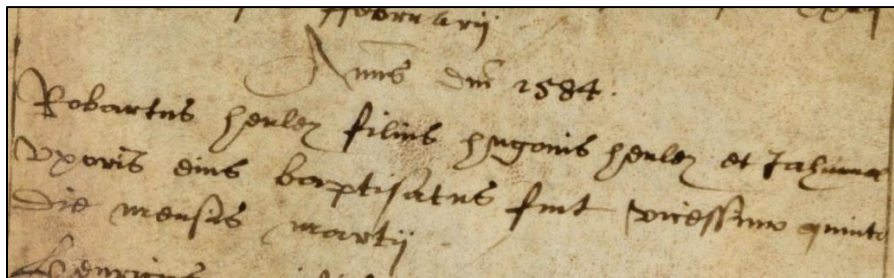 ffebruarij
Anno dm 1584.
Robartus henley filius hugonis henley et Johanna
vxoris eius baptisatus fuit vicessimo quinto
die mensis martij
Henricus